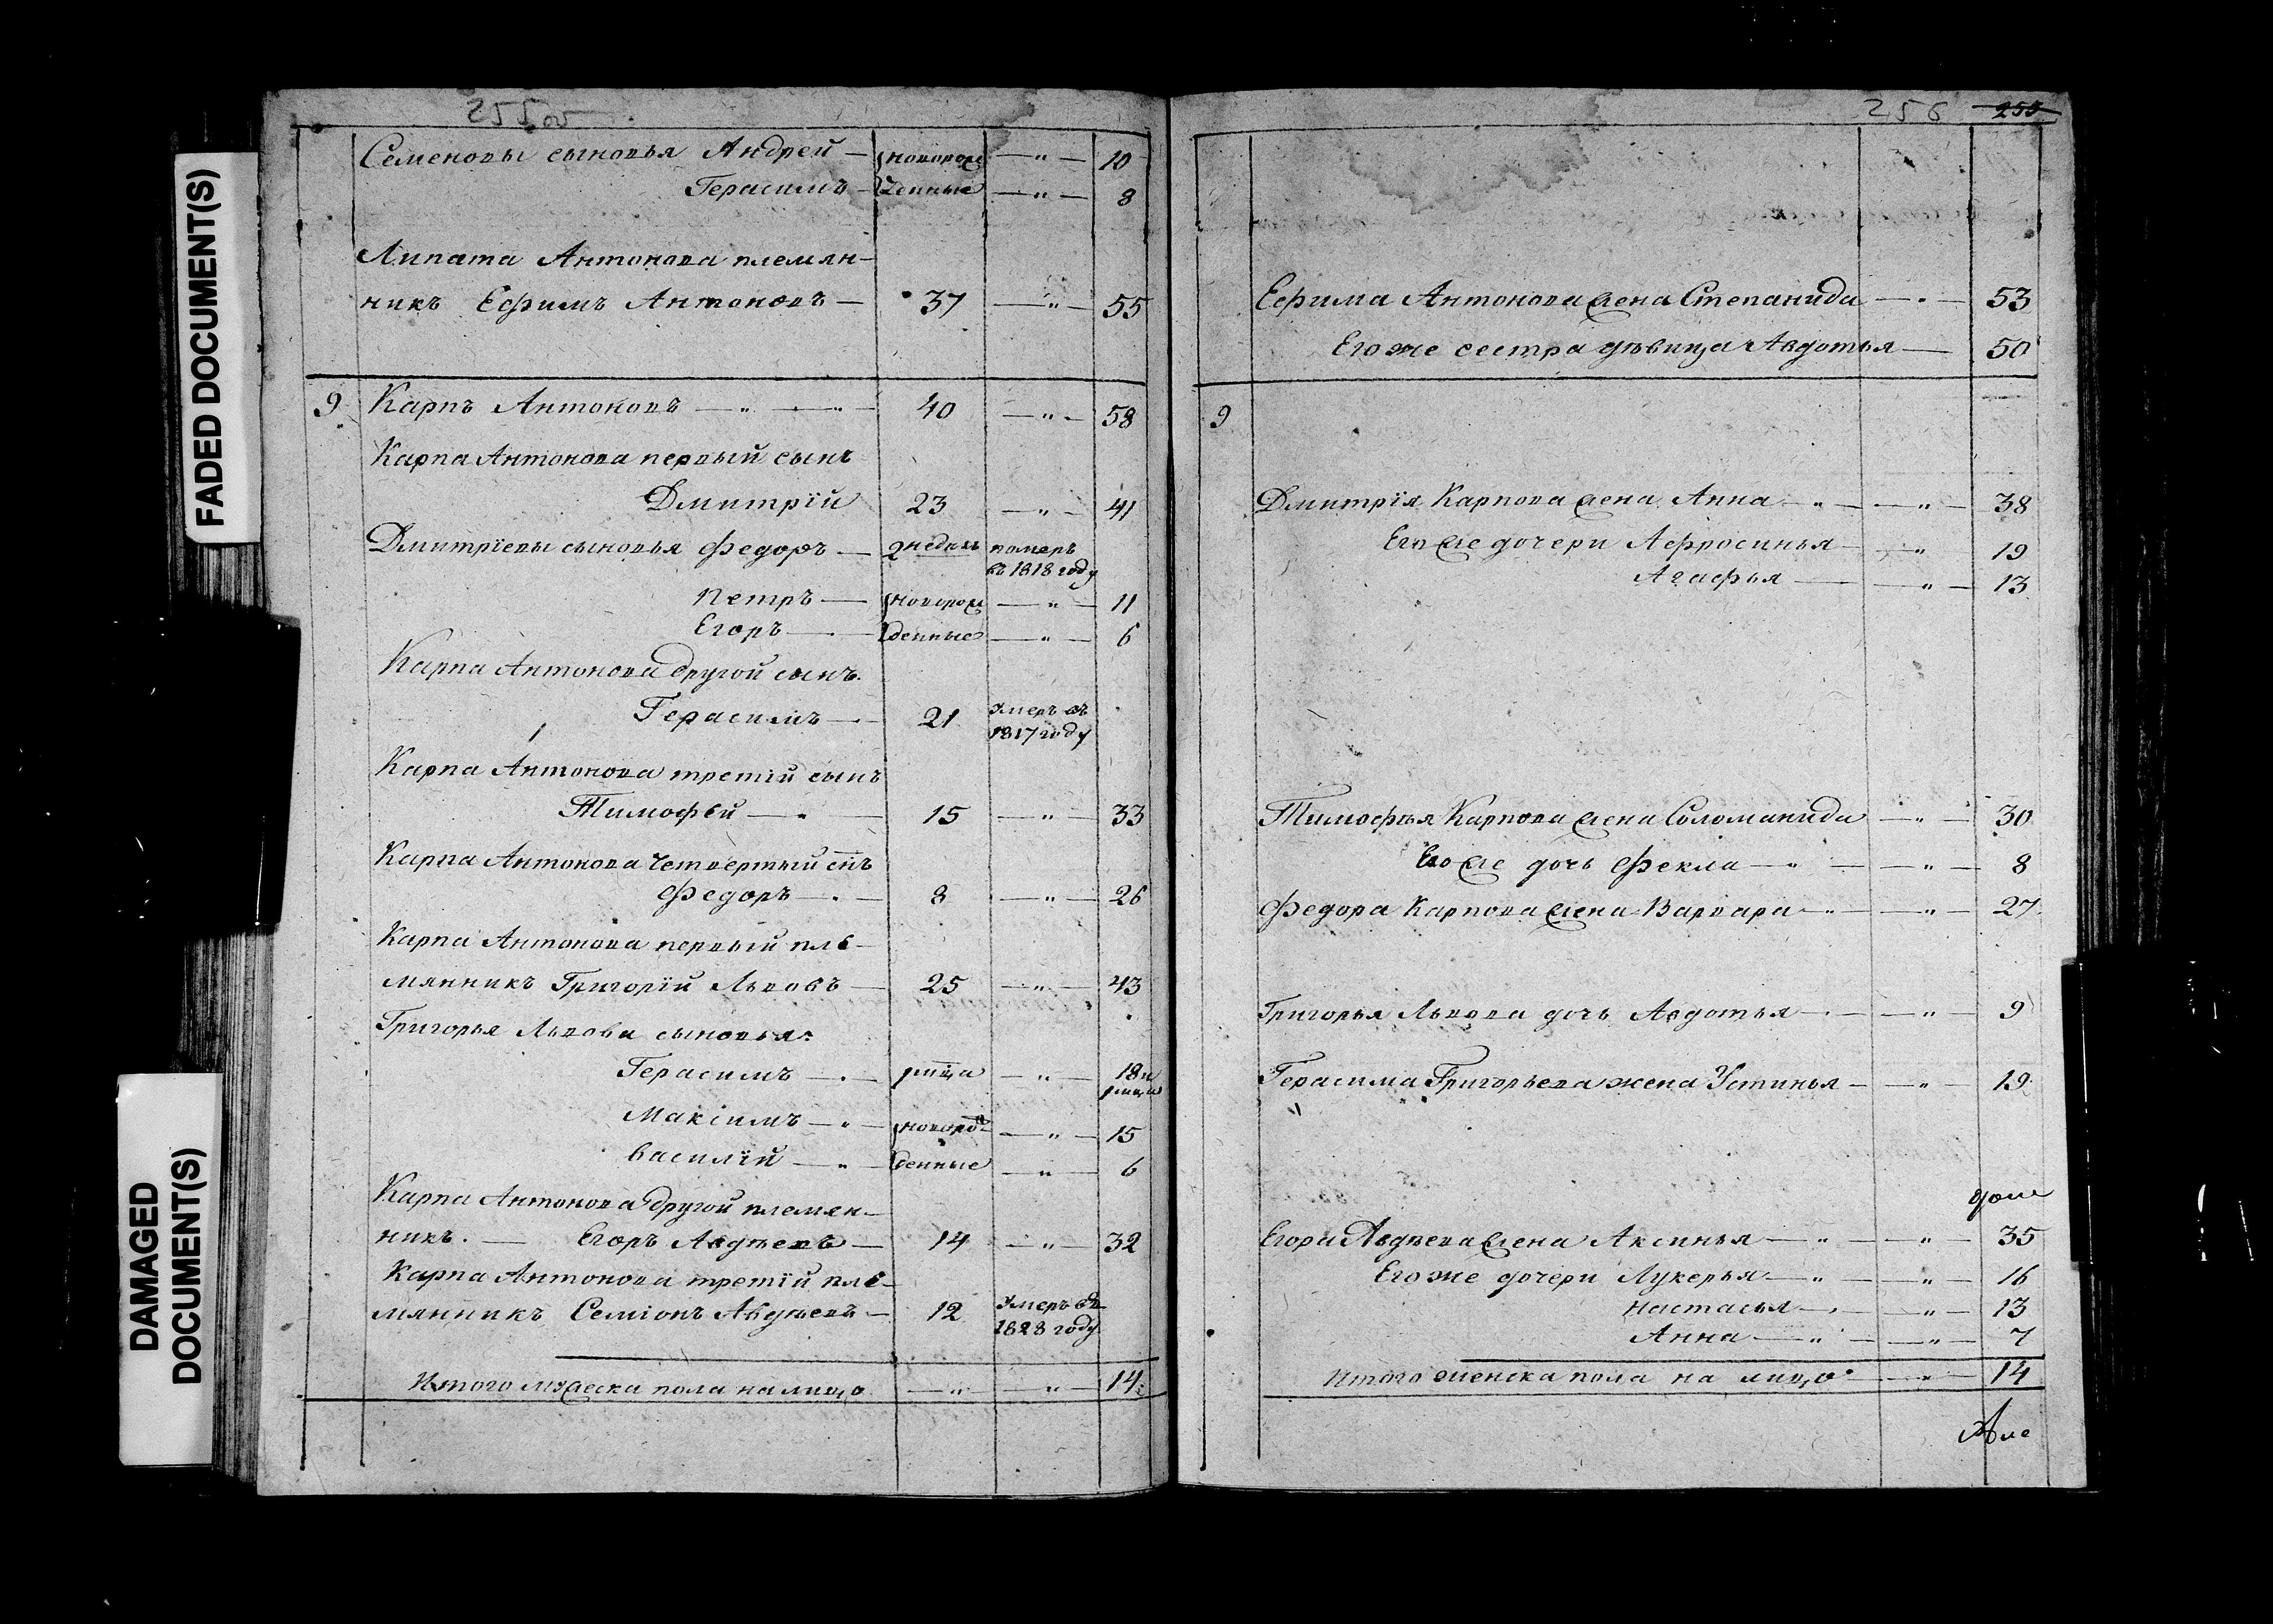 FADED DOCUMENT(S)
DAMAGED
DOCUMENT(S)
255об
Семеновы сыновья Андрей — новорож — " — 10
Герасимъ — денные — " — 8
Липата Антонова племян-
никъ Ефимъ Антоновъ — 37 — " — 55
9 Карпъ Антоновъ — " — " — 40 — " — 58
Карпа Антонова первый сынъ
Дмитрій 23 — " — 41
Дмитріевы сыновья Федоръ — 2 недель померъ
въ 1818 году
Петръ — новорож — " — 11
Егоръ — денные — " — 6
Карпа Антонова другой сынъ.
Герасимъ — 21 умеръ въ
1817 году
Карпа Антонова третій сынъ
Тимофѣй — " — 15 — " — 33
Карпа Антонова четвертый снъ
Федоръ — 8 — " — 26
Карпа Антонова первый пле-
мянникъ Григорій Львовъ — 25 — " — 43
Григорья Львова сыновья:
Герасимъ — 1 мца — " — 18 и
1 мца
Максимъ — " — новорож — " — 15
Василій — " — денные — " — 6
Карпа Антонова другой племян-
никъ. — Егоръ Авдѣевъ — 14 — " — 32
Карпа Антонова третій пле-
мянникъ Семіонъ Авдѣевъ — 12 умеръ въ
1828 году
Итого мужеска пола на лицо — " — " — 14
256 255
Ефима Антонова жена Степанида — " — 53
Его же сестра дѣвица Авдотья — 50
9
Дмитрія Карпова жена Анна — " — " — 38
Его же дочери Афросинья — " 19
Агафья — " — 13
Тимофья Карпова жена Соломанида — " — 30
Его же дочь Фекла — " — " — 8
Федора Карпова жена Варвара — " — " — 27
Григорья Львова дочь Авдотья — " — 9
Герасима Григорьева жена Устинья — " — 19
Егора Авдѣева жена Аксинья — " — " — 35
Его же дочери Лукерья — " — " — 16
Настасья — " — 13
Анна — " — " — 7
Итого женска пола на лицо — " — 14